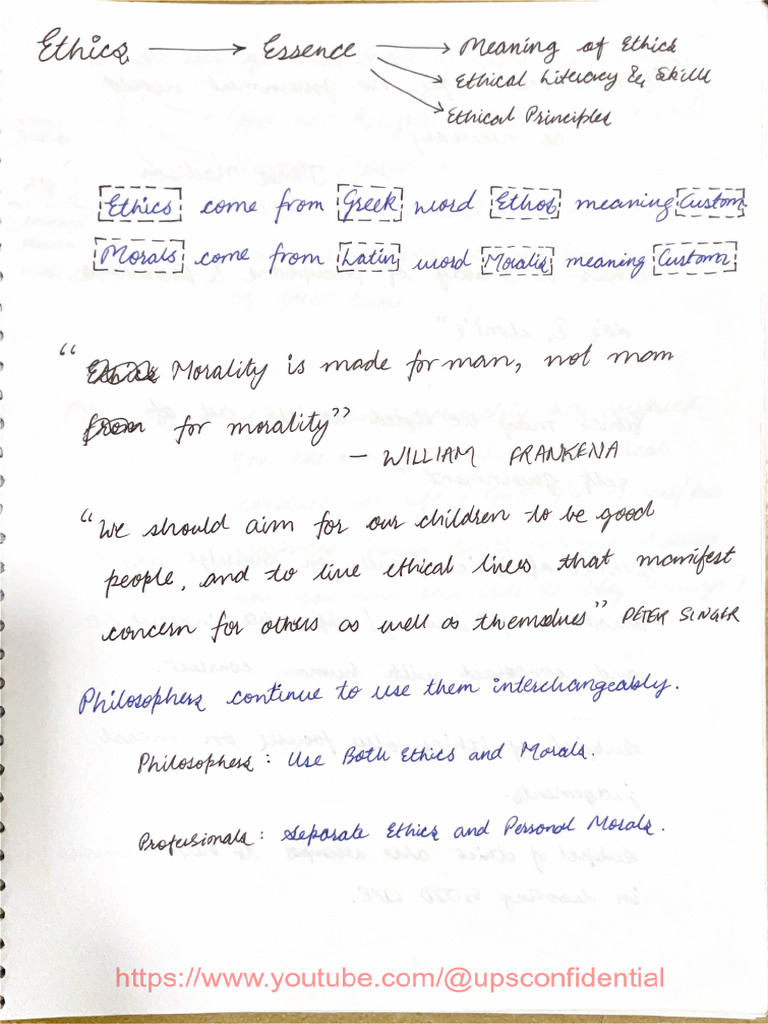 Ethics → Essence → Meaning of Ethics
→ Ethical Literacy & Skill
→ Ethical Principles
Ethics come from Greek word Ethos meaning Custom
Morals come from Latin word Moralis meaning Customs
“ Morality is made for man, not man
for morality”
— WILLIAM FRANKENA
“We should aim for our children to be good
people, and to live ethical lives that manifest
concern for others as well as themselves” PETER SINGER
Philosophers continue to use them interchangeably.
Philosophers: Use Both Ethics and Morals.
Professionals: Separate Ethics and Personal Morals.
https://www.youtube.com/@upsconfidential